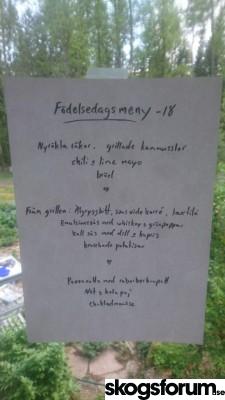 Födelsedagsmeny -18
Nyrökta räkor, grillade kammusslor
chili & lime mayo
bröd
Från grillen: Flyrygsbiff, sous vide karré,
Emulsionssås med whiskey & grönpeppar
kall sås med dill & kapris
krossade potatisar
Pannacotta med rabarberkompott
Nöt & kola paj
Chokladmousse
skogsforum.se